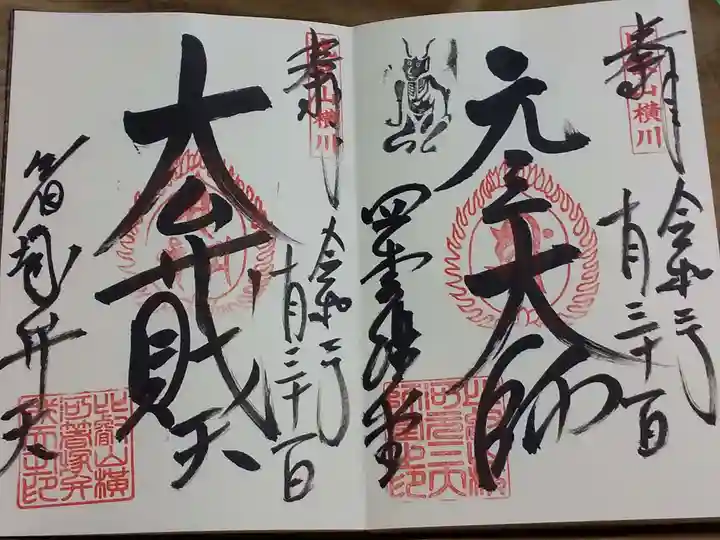 奉拝
比叡山横川
令和二年
十月三十一日
元三大師
四季講堂
比叡山横
川元三大
師堂之印
奉拝
比叡山横川
令和二年
十月三十一日
大弁財天
箸塚弁天
比叡山横
川箸塚弁